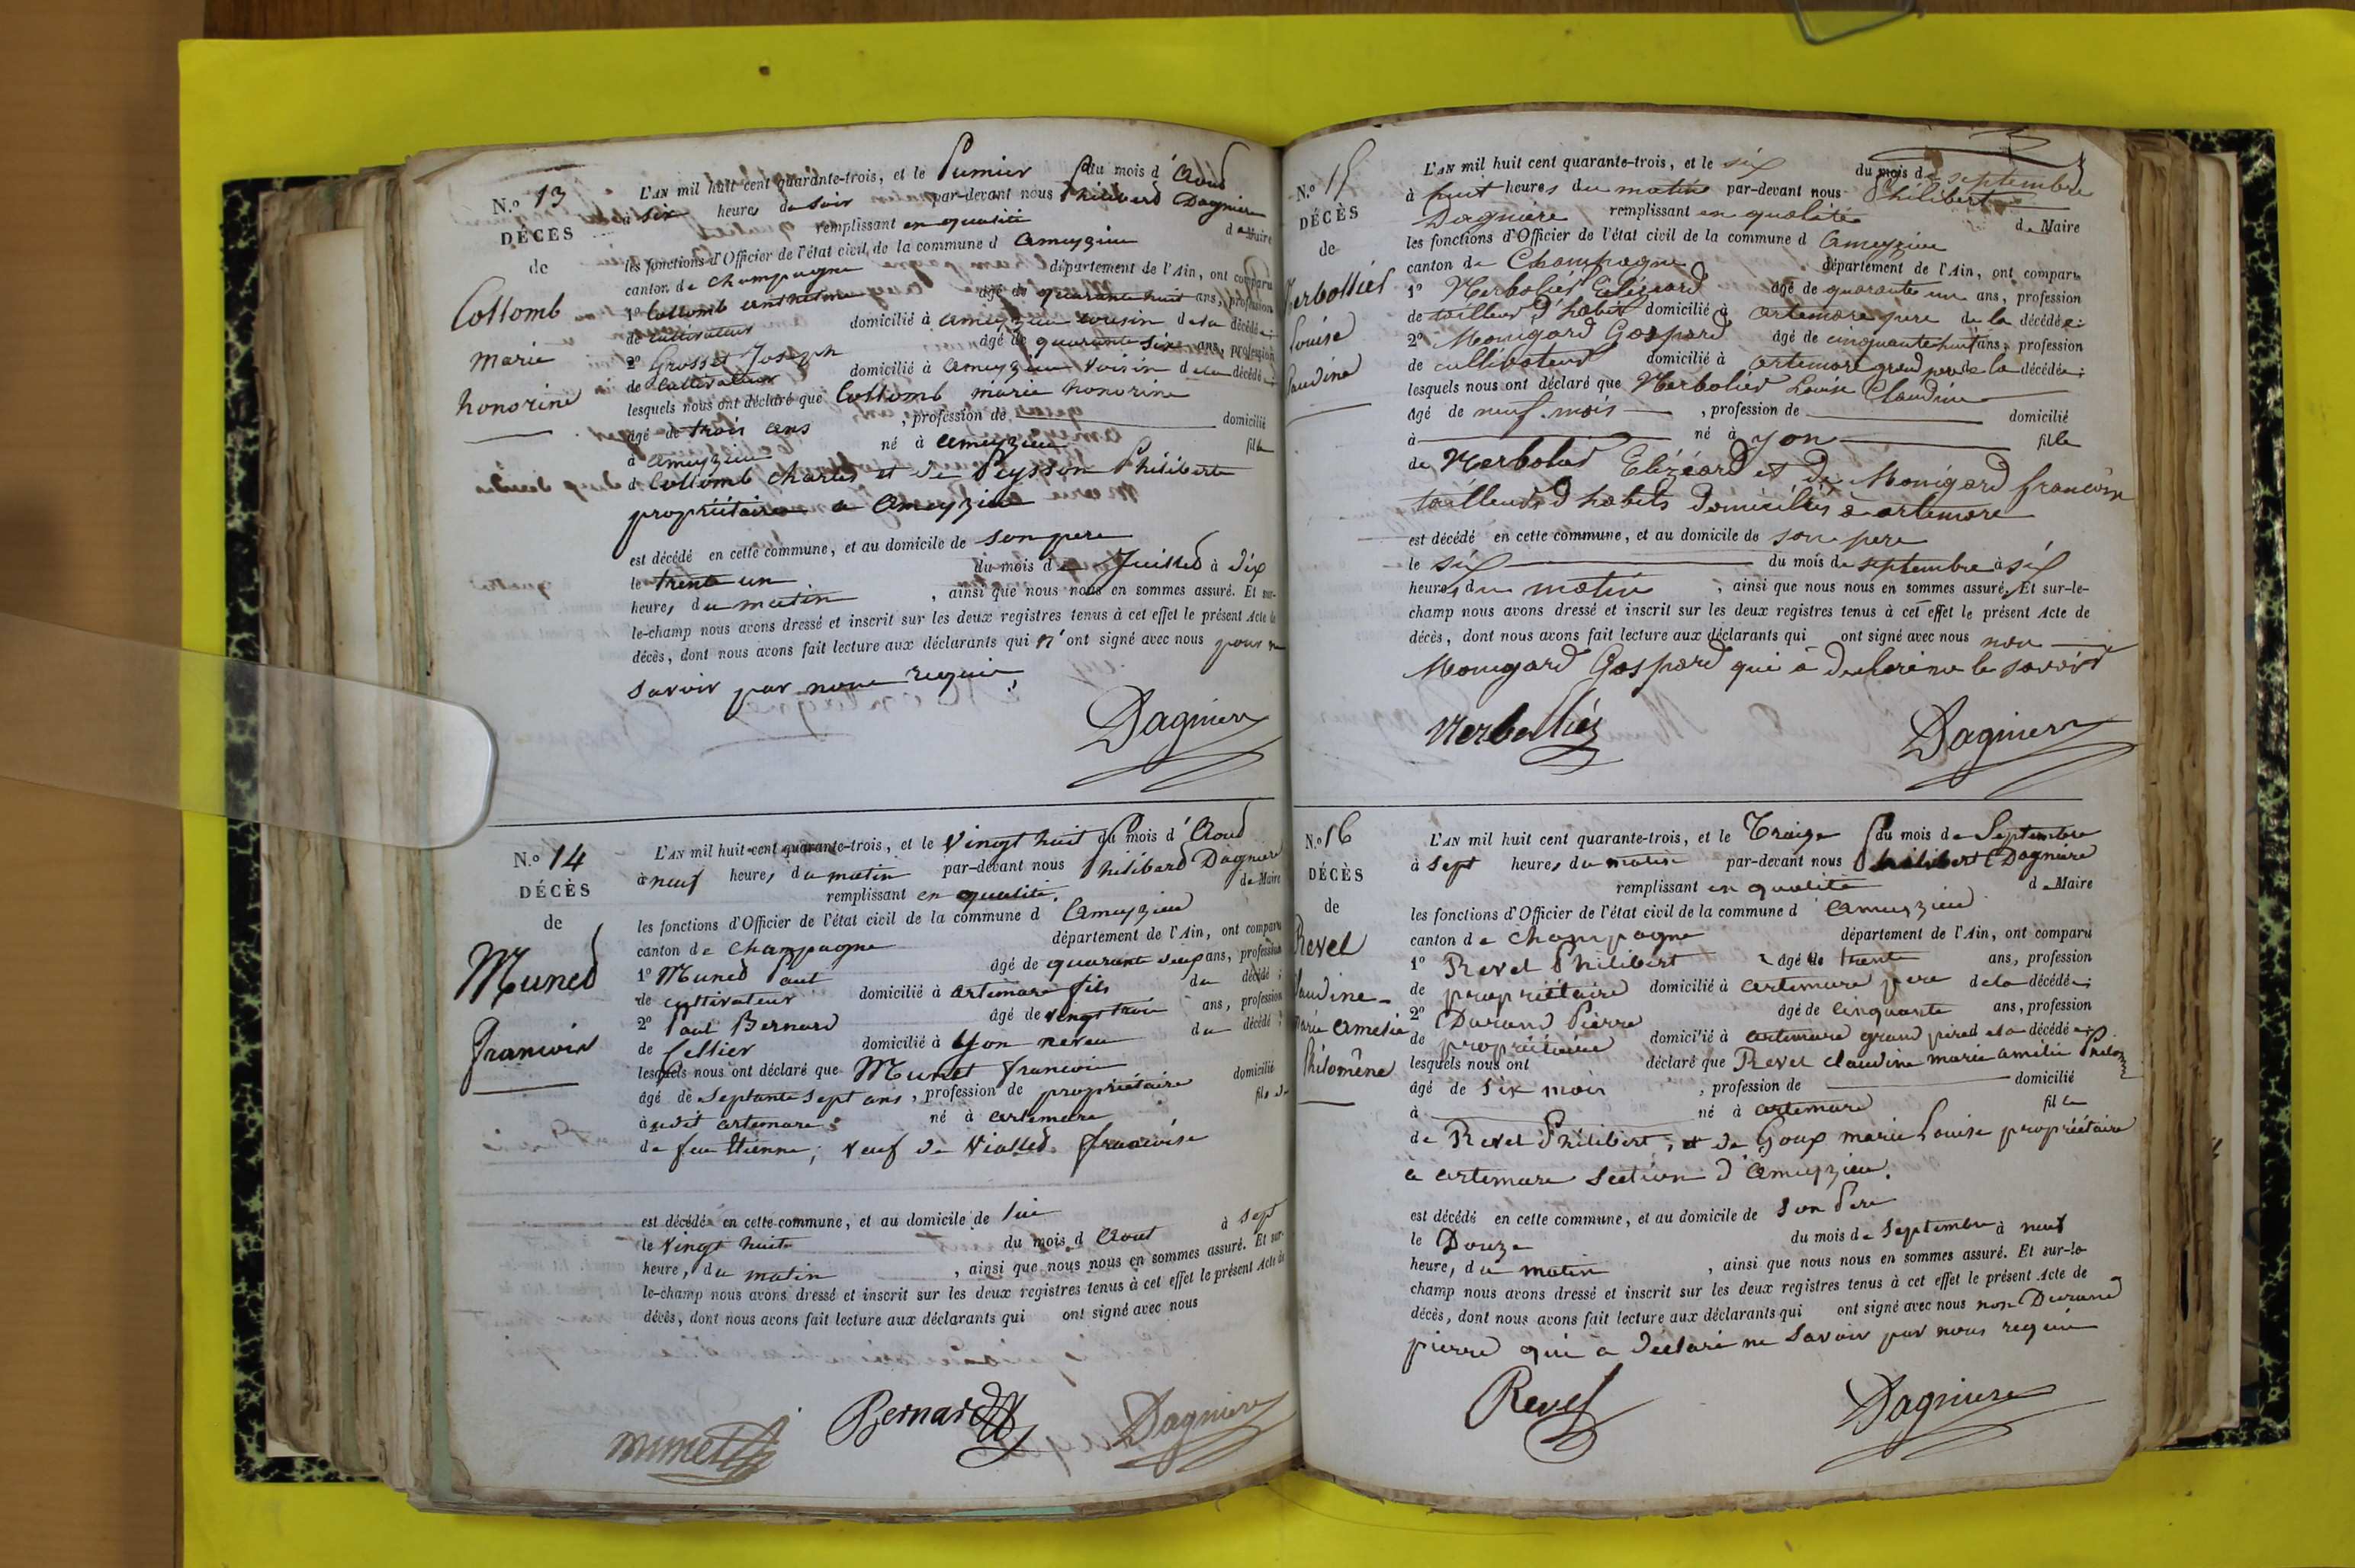 N.o 13
DÉCÈS
de
Collomb
marie
honorine
L'AN mil huit cent quarante-trois, et le Premier du mois d'Aoud
à six heures du soir par-devant nous Philiberd Dagniere
remplissant en qualité de Maire
les fonctions d'Officier de l'état civil de la commune d Ameyzieu
canton de Champagne département de l'Ain, ont comparu
1o Collomb anthelme âgé de quarante huit ans, profession
de cultivateur domicilié à ameyzieu cousin de la décédée;
2o Grosset Joseph âgé de quarante six ans, profession
de cultivateur domicilié à ameyzieu voisin de la décédée;
lesquels nous ont déclaré que Collomb marie honorine
âgé de trois ans , profession de domicilié
à ameyzieu né à ameyzieu fille
d Collomb charles et de Peysson Philiberte
propriétaires a Ameyzieu
est décédé en cette commune, et au domicile de son pere
le trente un du mois de Juilled à dix
heures du matin , ainsi que nous nous en sommes assuré. Et sur-
le-champ nous avons dressé et inscrit sur les deux registres tenus à cet effet le présent Acte de
décès, dont nous avons fait lecture aux déclarants qui n'ont signé avec nous pour ne
savoir par nous requis,
Dagniere
N.o 14
DÉCÈS
de
Muned
francois
L'AN mil huit cent quarante-trois, et le Vingt huit du mois d'Aoud
à neuf heures du matin par-devant nous Philiberd Dagniere
remplissant en qualité. de Maire
les fonctions d'Officier de l'état civil de la commune d Ameyzieu
canton de Champagne département de l'Ain, ont comparu
1o Muned Paul âgé de quarante ans, profession
de cultivateur domicilié à artemare fils du décédé;
2o Paul Bernard âgé de vingt trois ans, profession
de Cellier domicilié à Yon neveu du décédé;
lesquels nous ont déclaré que Munet francois
âgé de Septante sept ans, profession de propriétaire domicilié
à udit artemare né à artemare fils de
de feu Etienne; veuf de Violled francoise
est décédé en cette commune, et au domicile de lui
le Vingt huit du mois d Aout à sept
heure, du matin , ainsi que nous nous en sommes assuré. Et sur-
le-champ nous avons dressé et inscrit sur les deux registres tenus à cet effet le présent Acte de
décès, dont nous avons fait lecture aux déclarants qui ont signé avec nous
munet Bernard Dagniere
N.o 15
DÉCÈS
de
Verbollies
Louise
Claudine
L'AN mil huit cent quarante-trois, et le six du mois de septembre
à huit heures du matin par-devant nous Philibert
Dagniere remplissant en qualité de Maire
les fonctions d'Officier de l'état civil de la commune d Ameyzieu
canton de Champagne département de l'Ain, ont comparu
1o Verbolies Elézéard âgé de quarante un ans, profession
de tailleur d'habit domicilié à artemare père de la décédée;
2o Monigard Gaspard âgé de cinquante huit ans, profession
de cultivateur domicilié à artemare grand pere de la décédée;
lesquels nous ont déclaré que Verbolier Louise Claudine
âgé de neuf mois , profession de domicilié
à né à yon fille
de Verbolier Elézéard et de Monigard francoise
tailleurs d'habits domiciliés à artemare
est décédé en cette commune, et au domicile de son pere
le six du mois de septembre à six
heures du matin , ainsi que nous nous en sommes assuré. Et sur-le-
champ nous avons dressé et inscrit sur les deux registres tenus à cet effet le présent Acte de
décès, dont nous avons fait lecture aux déclarants qui ont signé avec nous non
Monigard Gaspard qui a declaré ne le savoir
Verbolliez Dagniere
N.o 16
DÉCÈS
de
Revel
Claudine
Marie Amelie
Philomène
L'AN mil huit cent quarante-trois, et le Traize du mois de Septembre
à sept heures du matin par-devant nous Philibert Dagniere
remplissant en qualité de Maire
les fonctions d'Officier de l'état civil de la commune d Ameyzieu
canton de Champagne département de l'Ain, ont comparu
1o Revel Philibert âgé de trente ans, profession
de propriétaire domicilié à artemare pere de la décédée;
2o Durand Pierre âgé de cinquante ans, profession
de propriétaire domicilié à artemare grand pere de la décédée;
lesquels nous ont déclaré que Revel claudine marie amélie Philom
âgé de six mois , profession de domicilié
à né à artemare fille
de Revel Philibert, et de Goux marie Louise propriétaire
à artemare section d'Ameyzieu.
est décédé en cette commune, et au domicile de son Pere
le Douze du mois de Septembre à neuf
heure, du matin , ainsi que nous nous en sommes assuré. Et sur-le-
champ nous avons dressé et inscrit sur les deux registres tenus à cet effet le présent Acte de
décès, dont nous avons fait lecture aux déclarants qui ont signé avec nous non Durand
pierre qui a déclaré ne savoir par nous requis
Revel Dagniere